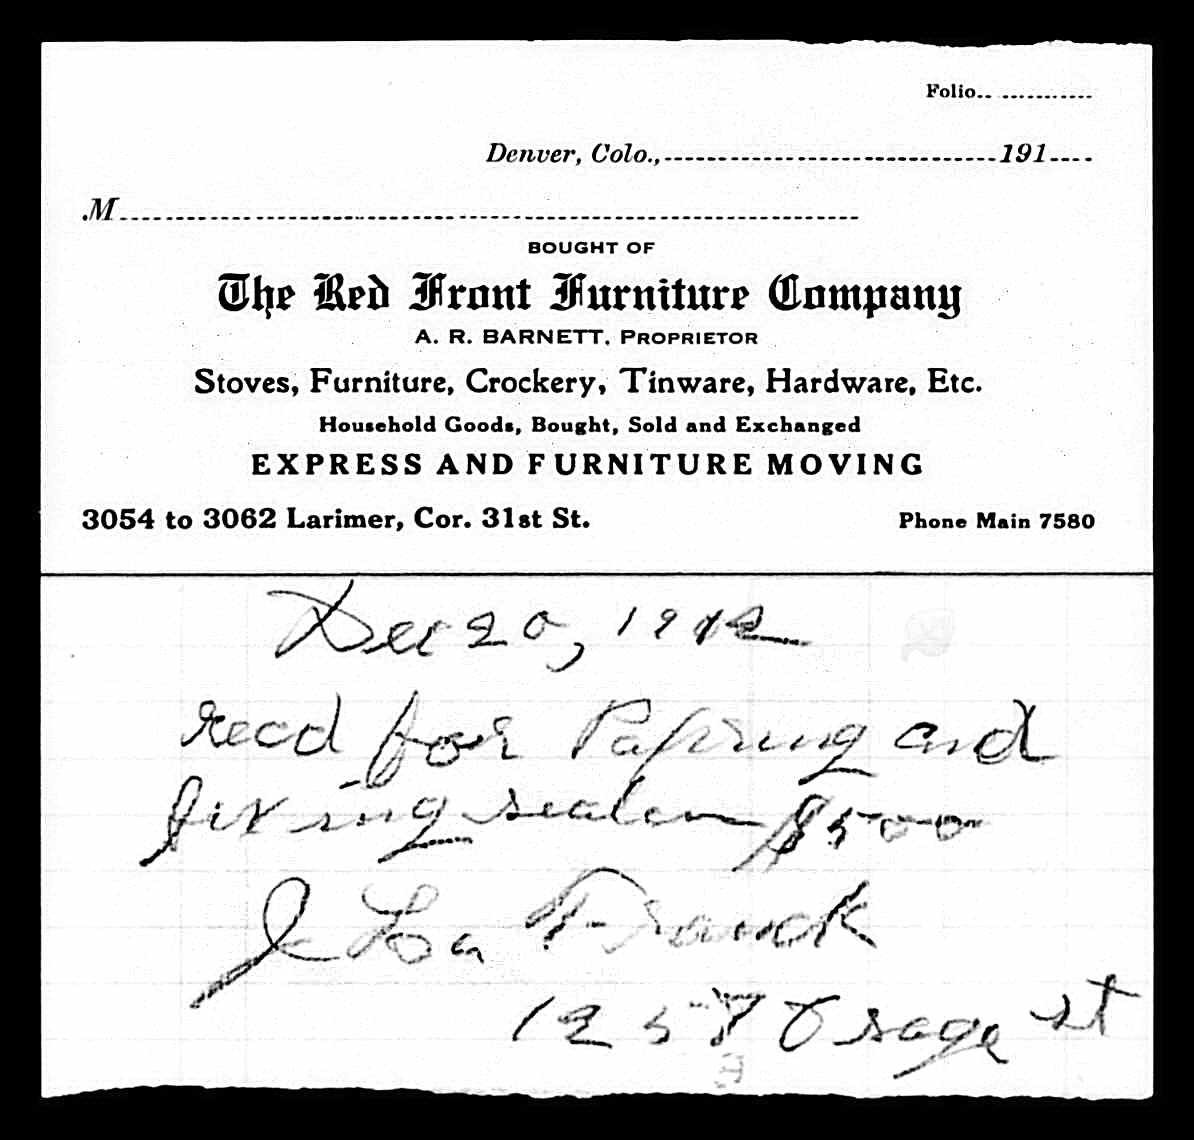 Folio
Denver, Colo., 191
M
BOUGHT OF
The Red Front Furniture Company
A. R. BARNETT, PROPRIETOR
Stoves, Furniture, Crockery, Tinware, Hardware, Etc.
Household Goods, Bought, Sold and Exchanged
EXPRESS AND FURNITURE MOVING
3054 to 3062 Larimer, Cor. 31st St.
Phone Main 7580
Dec 20, 1912
recd for Papring and
fixing $500
J La Franck
1257 Osage st